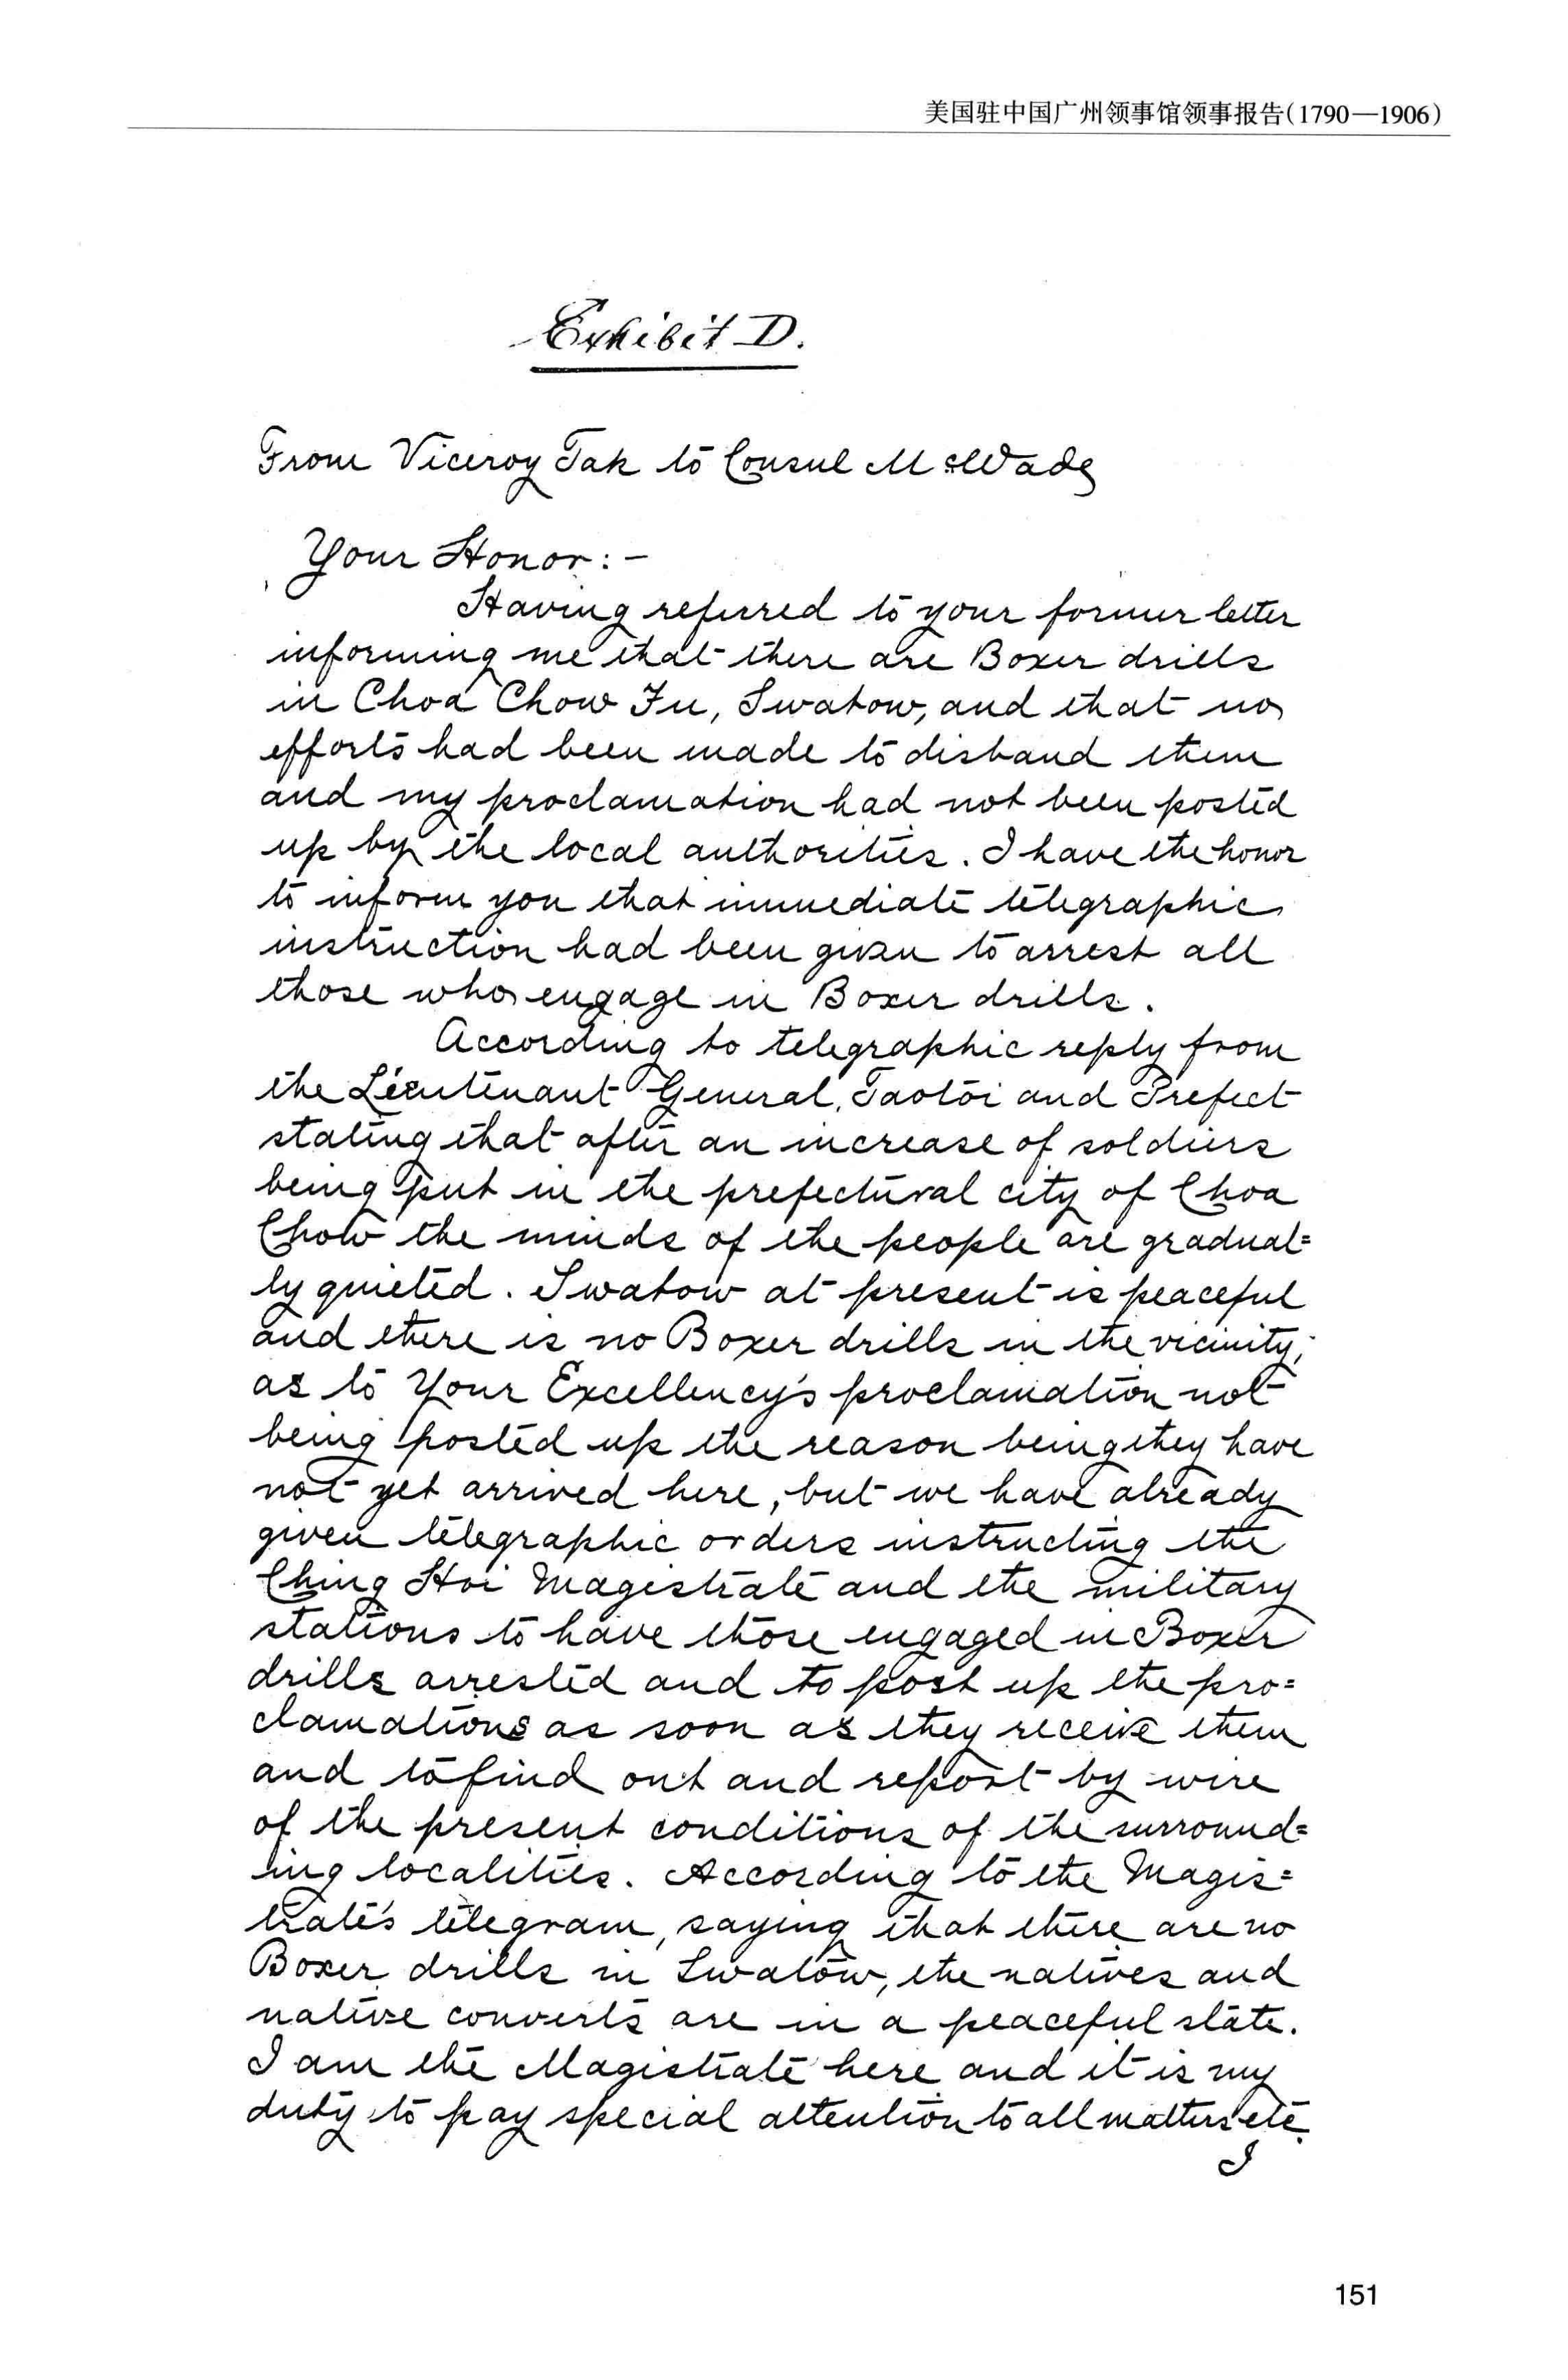 美国驻中国广州领事馆领事报告(1790—1906)
Exhibit D.
From Viceroy Tak to Consul McWade
Your Honor:-
Having referred to your former letter
informing me that there are Boxer drills
in Choa Chow Fu, Swatow, and that no
efforts had been made to disband them
and my proclamation had not been posted
up by the local authorities. I have the honor
to inform you that immediate telegraphic
instruction had been given to arrest all
those who engage in Boxer drills.
According to telegraphic reply from
the Lieutenant General, Taotoi and Prefect
stating that after an increase of soldiers
being put in the prefectural city of Choa
Chow the minds of the people are gradual=
ly quieted. Swatow at present is peaceful
and there is no Boxer drills in the vicinity;
as to Your Excellency's proclamation not
being posted up the reason being they have
not yet arrived here, but we have already
given telegraphic orders instructing the
Ching Hoi Magistrate and the military
stations to have those engaged in Boxer
drills arrested and to post up the pro=
clamations as soon as they receive them
and to find out and report by wire
of the present conditions of the surround=
ing localities. According to the Magis=
trate's telegram, saying that there are no
Boxer drills in Swatow, the natives and
native converts are in a peaceful state.
I am the Magistrate here and it is my
duty to pay special attention to all matters etc.
I
151